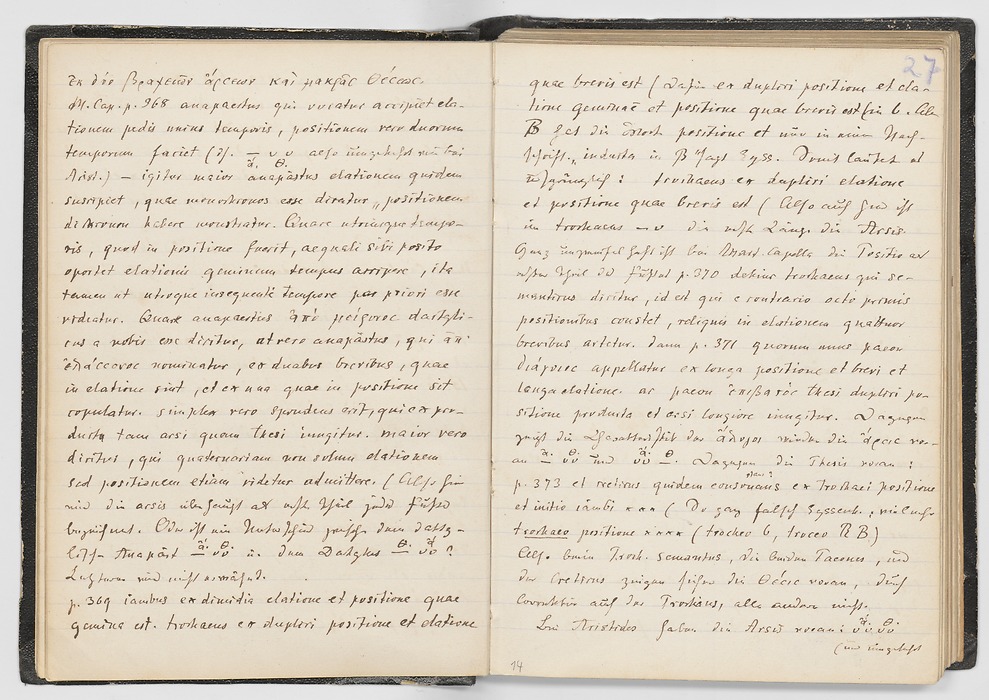 ἐκ δύο βραχειῶν ἄρσεων καὶ μακρᾶς θέσεως.
M. Cap. p. 368 anapaestus qui vocatur accipiet ela-
tionem pedis unius temporis, positionem vero duorum
temporum faciet (d. – ᴗ ᴗ also umgekehrt wie bei
ἄ. θ.
Arist.) – igitur maior anapaestus elationem quidem
suscipiet, quae monochronos esse dicatur, positionem
dichronon habere monstratur. Quare utriusque tempo-
ris, quod in positione fuerit, aequali sibi posito
oportet elationis geminum tempus accipere, ita
tamen ut utroque insequente tempore par priori esse
videatur. Quare anapaestus ἀπὸ μείζονος dactyli-
cus a nobis esse dicitur, at vero anapaestus, qui ἀπ'
ἐλάσσονος nominatur, ex duabus brevibus, quae
in elatione sint, et ex una quae in positione sit
copulatur. simplex vero spondeus erit, qui ex pro-
ducta tam arsi quam thesi iungitur. maior vero
dicitur, qui quaternariam non solum elationem
sed positionem etiam videtur admittere. (Also hier
wird die arsis überhaupt als erster Theil jedes Fußes
bezeichnet. Oder ist ein Unterschied zwischen dem dakty-
lischen Anapäst – ᴗᴗ u. dem Daktylus – ᴗᴗ ?
ἄ. θ. θ. ἄ.
Letzterer wird nicht erwähnt.
p. 369 iambus ex dimidia elatione et positione quae
gemina est. trochaeus ex duplici positione et elatione
14
27
quae brevis est (Dafür ex duplici positione et ela-
tione geminae et positione quae brevis est in b. Aber
B hat die Worte positione et nur in einer Nach-
schrift, inducta in B sagt Eyss. Somit lautet es
ursprünglich: trochaeus ex duplici elatione
et positione quae brevis est (Also auch hier ist
im trochaeus – ᴗ die erste Länge die Arsis.
Ganz unzweifelhaft ist bei Mart. Capella die Positio als
erster Theil des Fußes p. 370 dehinc trochaeus qui se-
mantus dicitur, id est qui e contrario octo primis
positionibus constet, reliquis in elationem quattuor
brevibus artetur. dann p. 371 quorum unus paeon
διάγυιος appellatur ex longa positione et brevi et
longa elatione. ac paeon ἐπιβατός thesi duplici po-
sitione producta et arsi longiore iungitur. Dagegen
zeigt die Charakteristik des ἄλογος wieder die ἄρσις vo-
an – ᴗᴗ und ᴗᴗ –. Dagegen die Thesis voran:
ἄ. θ. ἄ. θ.
p. 373 et creticus quidem consonans ex trochaei positione
et initio iambi xxx (So ganz falsch Eyssenh., vielmehr
trochaeo positione xxxx (trocheo b, troceo RB)
Also beim Troch. semantus, die beiden Paeonen, und
der Creticus zeigen sicher die θέσις voran, durch
Correktur auch der Trochäus, alle andern nicht.
Bei Aristides haben die Arsis voran: ᴗᴗ
ἄ. θ.
(und umgekehrt